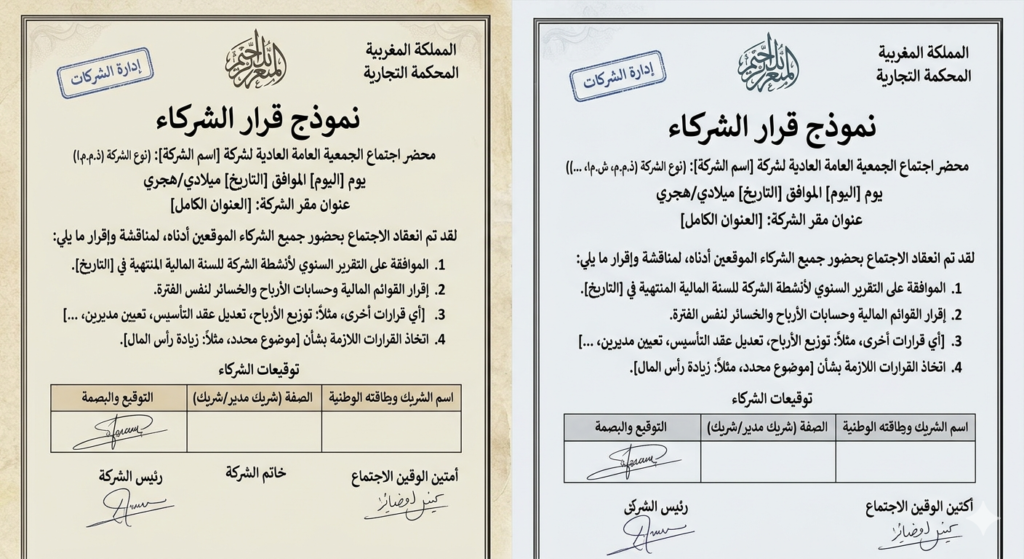 المملكة المغربية
المحكمة التجارية
إدارة الشركات
نموذج قرار الشركاء
محضر اجتماع الجمعية العامة العادية لشركة [اسم الشركة]: (نوع الشركة (ذ.م.م.ا)
يوم [اليوم] الموافق [التاريخ] ميلادي/هجري
عنوان مقر الشركة: [العنوان الكامل]
لقد تم انعقاد الاجتماع بحضور جميع الشركاء الموقعين أدناه، لمناقشة وإقرار ما يلي:
1. الموافقة على التقرير السنوي لأنشطة الشركة للسنة المالية المنتهية في [التاريخ].
2. إقرار القوائم المالية وحسابات الأرباح والخسائر لنفس الفترة.
3. [أي قرارات أخرى، مثلاً: توزيع الأرباح، تعديل عقد التأسيس، تعيين مديرين، ...]
4. اتخاذ القرارات اللازمة بشأن [موضوع محدد، مثلاً: زيادة رأس المال].
توقيعات الشركاء
اسم الشريك وبطاقته الوطنية الصفة (شريك مدير/شريك) التوقيع والبصمة
أمتين الوقين الاجتماع خاتم الشركة رئيس الشركة
المملكة المغربية
المحكمة التجارية
إدارة الشركات
نموذج قرار الشركاء
محضر اجتماع الجمعية العامة العادية لشركة [اسم الشركة]: (نوع الشركة (ذ.م.م، ش.م.ا، ...))
يوم [اليوم] الموافق [التاريخ] ميلادي/هجري
عنوان مقر الشركة: [العنوان الكامل]
لقد تم انعقاد الاجتماع بحضور جميع الشركاء الموقعين أدناه، لمناقشة وإقرار ما يلي:
1. الموافقة على التقرير السنوي لأنشطة الشركة للسنة المالية المنتهية في [التاريخ].
2. إقرار القوائم المالية وحسابات الأرباح والخسائر لنفس الفترة.
3. [أي قرارات أخرى، مثلاً: توزيع الأرباح، تعديل عقد التأسيس، تعيين مديرين، ...]
4. اتخاذ القرارات اللازمة بشأن [موضوع محدد، مثلاً: زيادة رأس المال].
توقيعات الشركاء
اسم الشريك وبطاقته الوطنية الصفة (شريك مدير/شريك) التوقيع والبصمة
أكتين الوقين الاجتماع رئيس الشركى